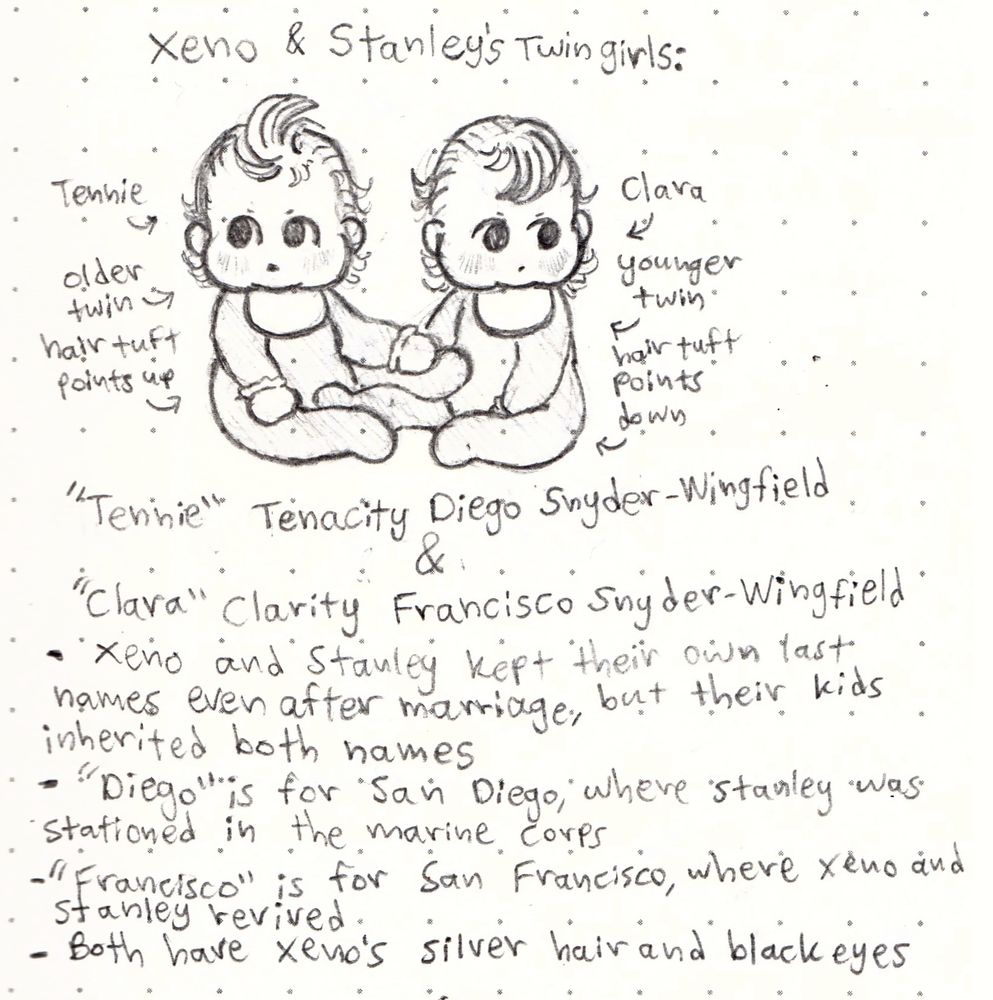 Xeno & Stanley's Twin girls:
Tennie
older
twin
hair tuft
points up
Clara
younger
twin
hair tuft
points
down
"Tennie" Tenacity Diego Snyder-Wingfield
&
"Clara" Clarity Francisco Snyder-Wingfield
- Xeno and Stanley kept their own last
names even after marriage, but their kids
inherited both names
- "Diego" is for San Diego, where Stanley was
stationed in the marine corps
- "Francisco" is for San Francisco, where Xeno and
Stanley revived
- Both have Xeno's silver hair and black eyes